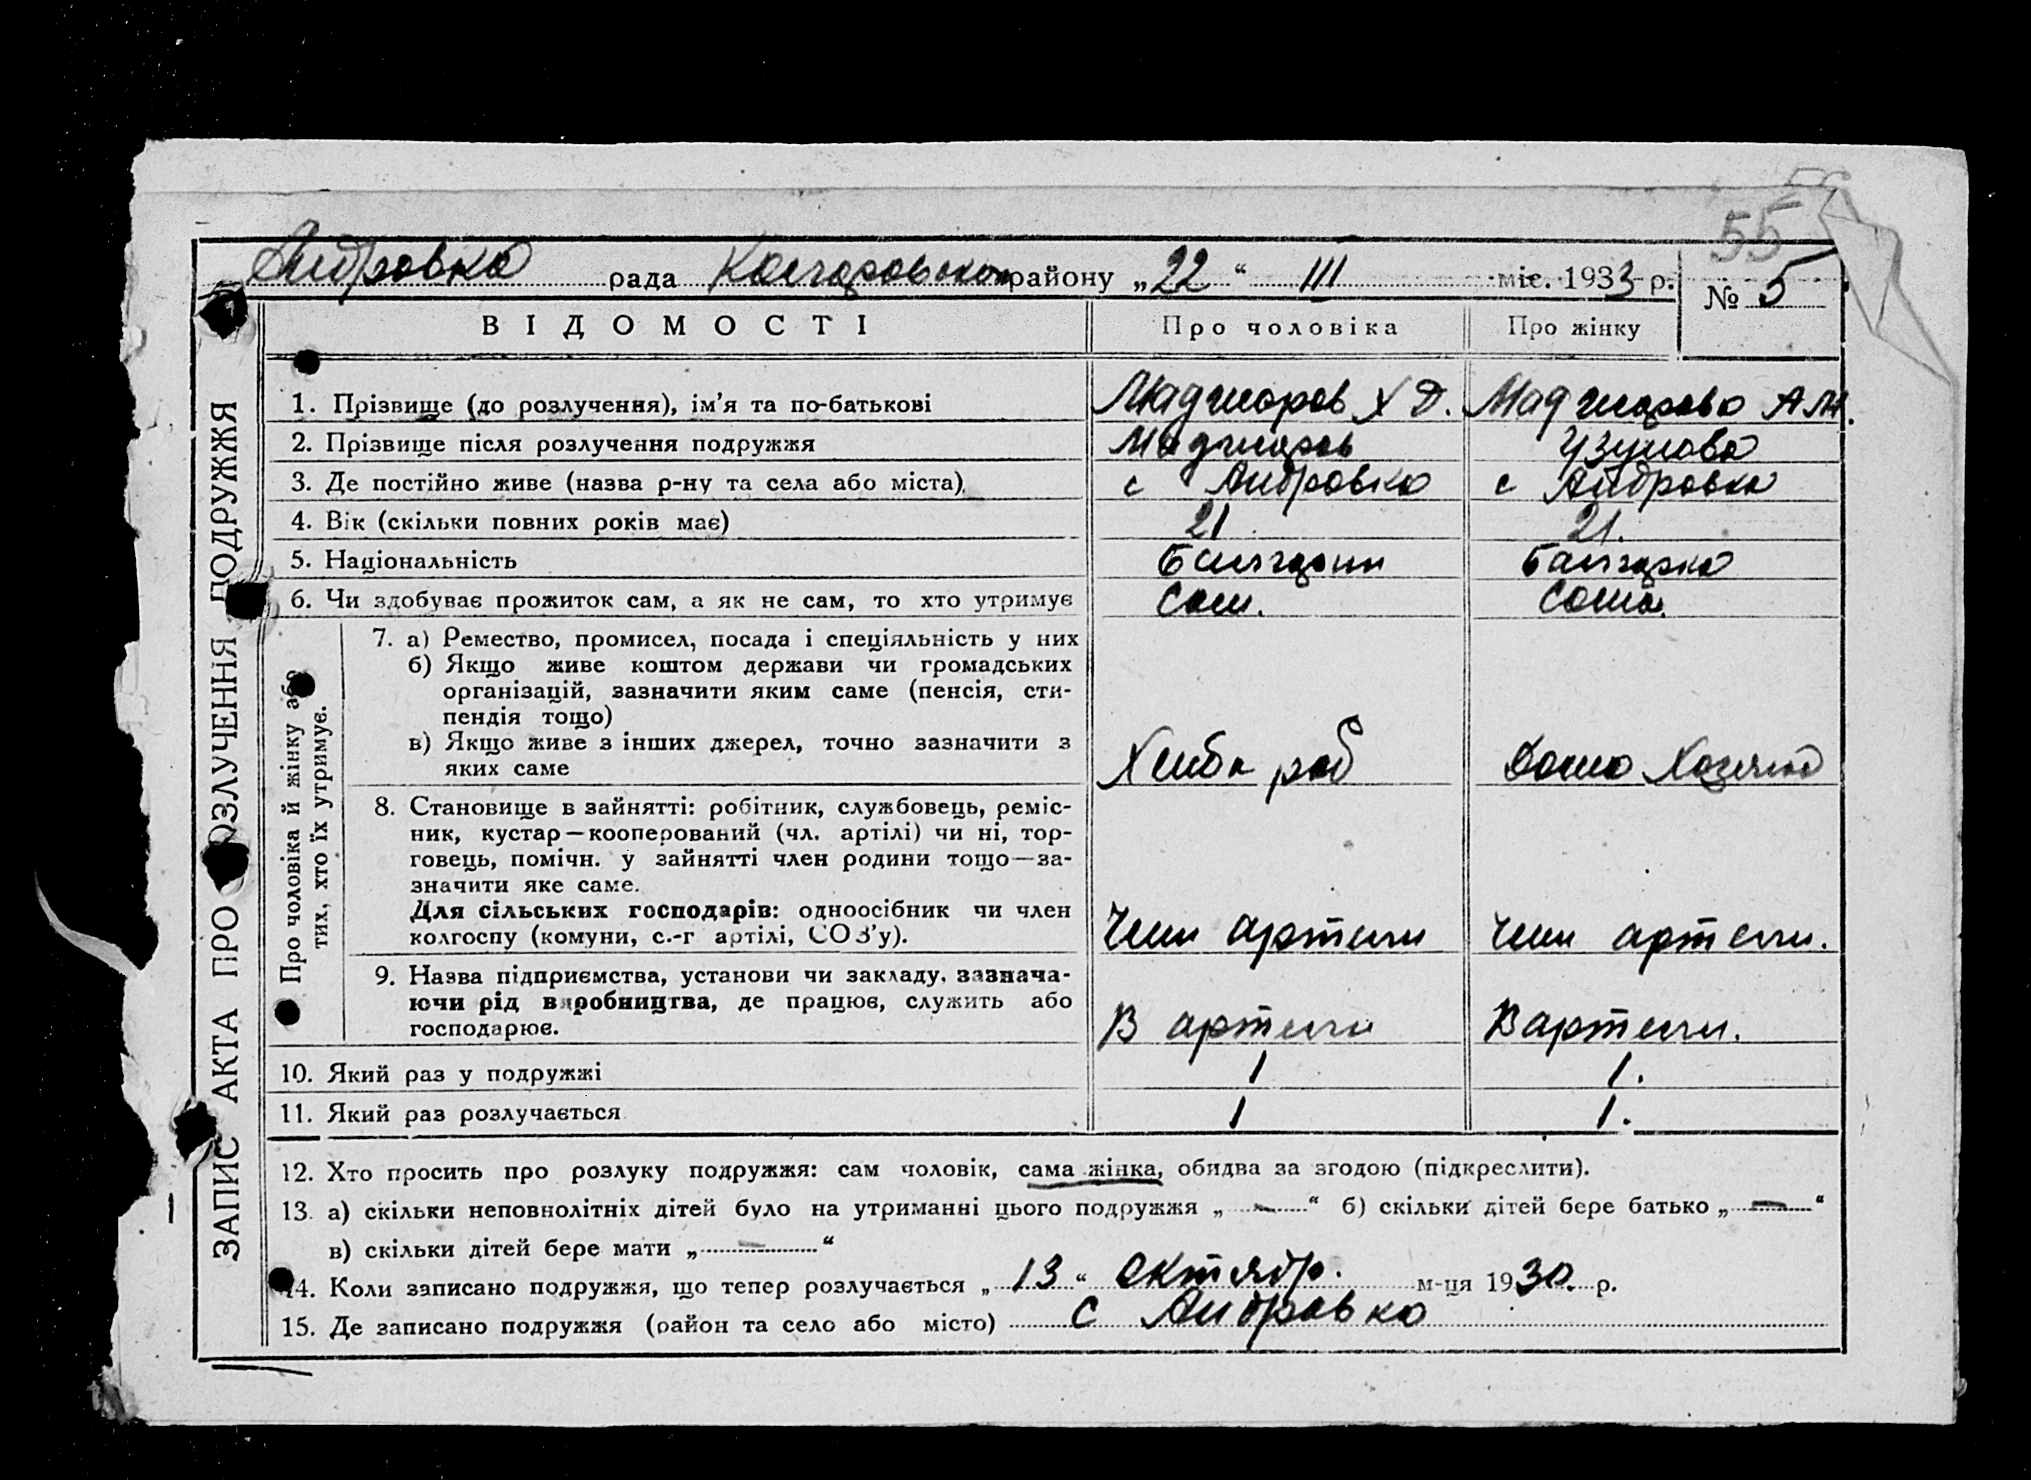 55
Андровка рада Коларовского району „22“ III міс. 1933 р. № 5
ВІДОМОСТІ Про чоловіка Про жінку
ЗАПИС АКТА ПРО РОЗЛУЧЕННЯ ПОДРУЖЖЯ
1. Прізвище (до розлучення), ім’я та по-батькові Маджаров Х Д. Маджарова А М.
2. Прізвище після розлучення подружжя Маджаров Узунова
3. Де постійно живе (назва р-ну та села або міста) с Андровка с Андровка
4. Вік (скільки повних років має) 21 21.
5. Національність Болгарин Болгарка
6. Чи здобуває прожиток сам, а як не сам, то хто утримує Сам. Сама.
Про чоловіка й жінку або
тих, хто їх утримує.
7. а) Ремество, промисел, посада і спеціяльність у них
б) Якщо живе коштом держави чи громадських
організацій, зазначити яким саме (пенсія, сти-
пендія тощо)
в) Якщо живе з інших джерел, точно зазначити з
яких саме Хлебороб Домо Хозяйка
8. Становище в зайнятті: робітник, службовець, реміс-
ник, кустар—кооперований (чл. артілі) чи ні, тор-
говець, помічн. у зайнятті член родини тощо—за-
значити яке саме.
Для сільських господарів: одноосібник чи член
колгоспу (комуни, с.-г артілі, СОЗ’у). Член артели член артели.
9. Назва підприємства, установи чи закладу, зазнача-
ючи рід виробництва, де працює, служить або
господарює. В артели В артели.
10. Який раз у подружжі 1 1.
11. Який раз розлучається 1 1.
12. Хто просить про розлуку подружжя: сам чоловік, сама жінка, обидва за згодою (підкреслити).
13. а) скільки неповнолітніх дітей було на утриманні цього подружжя „ — “ б) скільки дітей бере батько „ — “
в) скільки дітей бере мати „ — “
14. Коли записано подружжя, що тепер розлучається „ 13 “ Октябр. м-ця 1930. р.
15. Де записано подружжя (район та село або місто) с Андровка